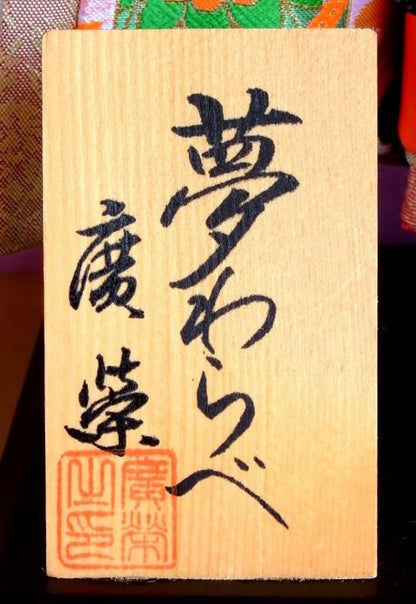 夢わらべ
廣榮
廣榮
之印